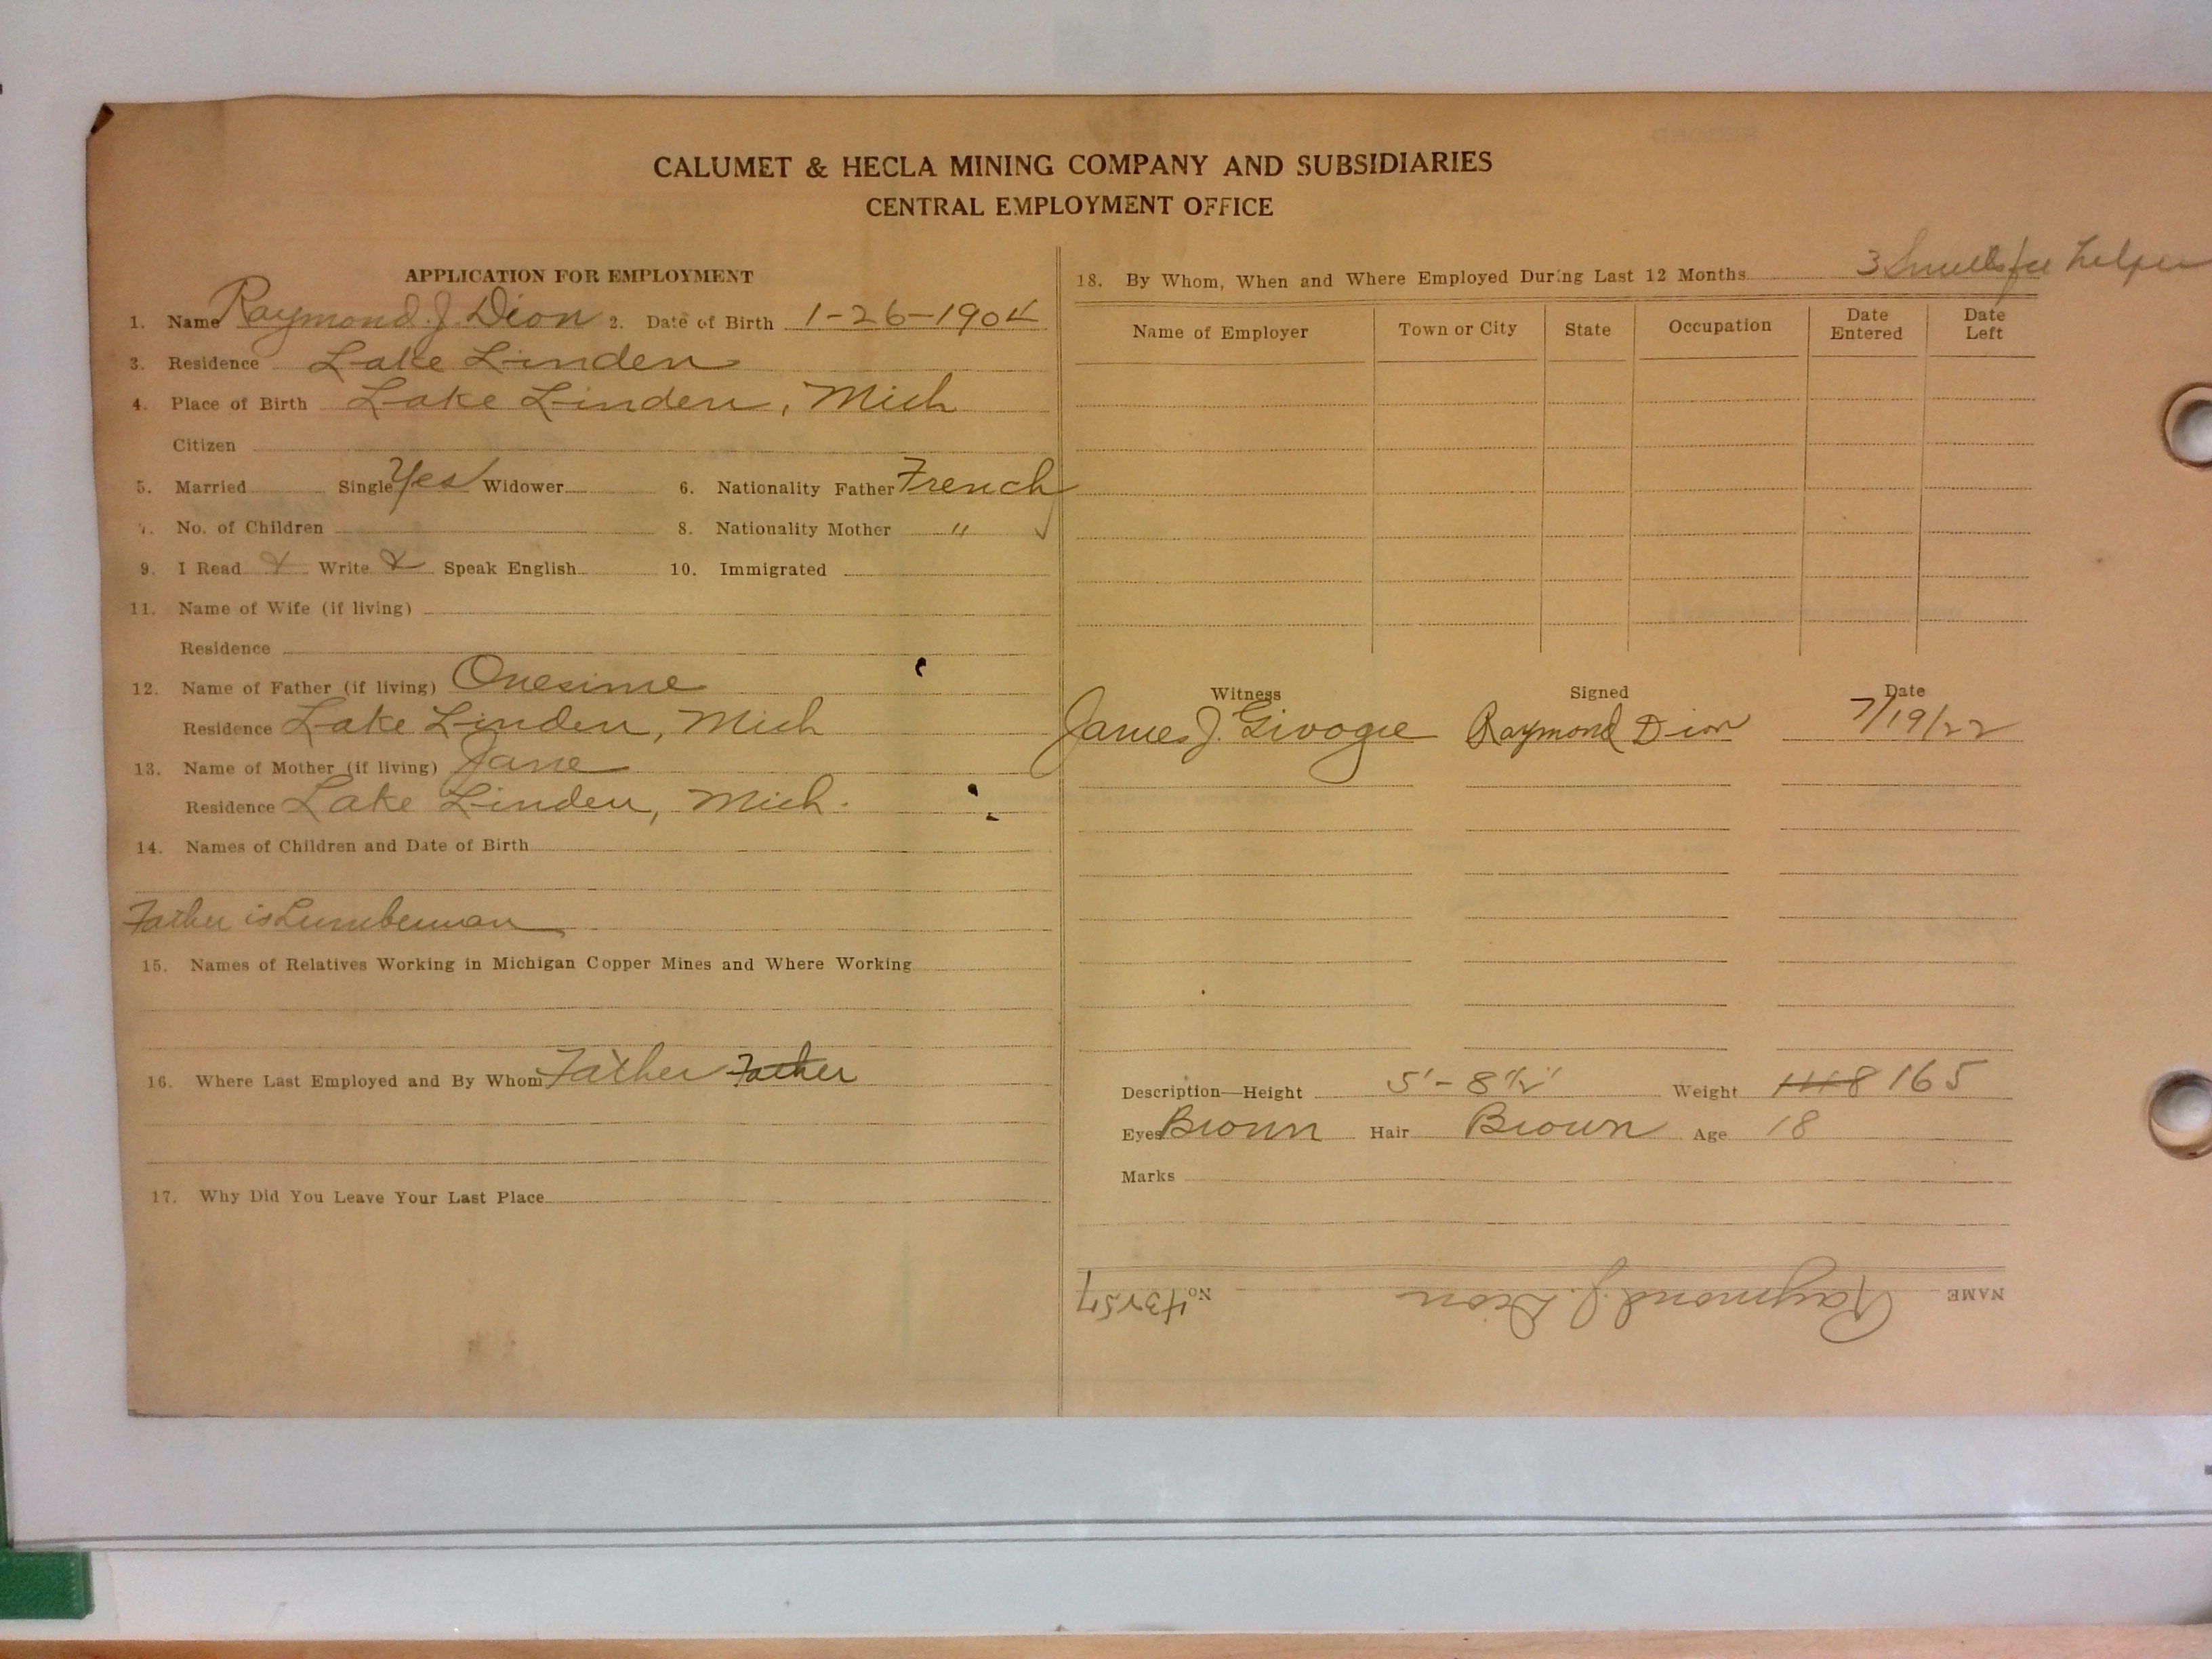 CALUMET & HECLA MINING COMPANY AND SUBSIDIARIES
CENTRAL EMPLOYMENT OFFICE
APPLICATION FOR EMPLOYMENT
1. Name Raymond J. Dion 2. Date of Birth 1-26-1904
3. Residence Lake Linden
4. Place of Birth Lake Linden, Mich
Citizen
5. Married Single Yes Widower 6. Nationality Father French
7. No. of Children 8. Nationality Mother "
9. I Read X Write X Speak English 10. Immigrated
11. Name of Wife (if living)
Residence
12. Name of Father (if living) Onesime
Residence Lake Linden, Mich
13. Name of Mother (if living) Jane
Residence Lake Linden, Mich.
14. Names of Children and Date of Birth
Father is Lumberman
15. Names of Relatives Working in Michigan Copper Mines and Where Working
16. Where Last Employed and By Whom Father Father
17. Why Did You Leave Your Last Place
3 helper
18. By Whom, When and Where Employed During Last 12 Months
Name of Employer Town or City State Occupation Date Entered Date Left
Witness Signed Date
James J. Raymond Dion 7/19/22
Description—Height 5'-8 1/2" Weight 165
Eyes Brown Hair Brown Age 18
Marks
NAME Raymond J. Dion No.